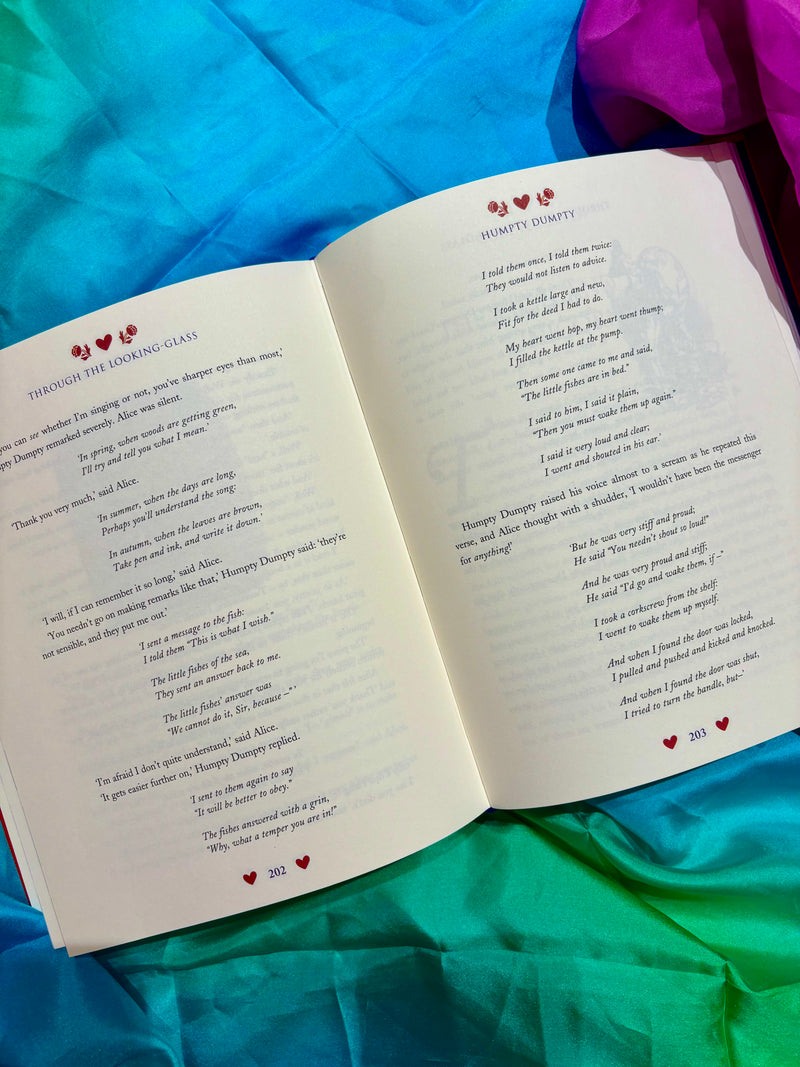 THROUGH THE LOOKING-GLASS
you can see whether I'm singing or not, you've sharper eyes than most,'
Dumpty remarked severely. Alice was silent.
'In spring, when woods are getting green,
I'll try and tell you what I mean.'
'Thank you very much,' said Alice.
'In summer, when the days are long,
Perhaps you'll understand the song:
In autumn, when the leaves are brown,
Take pen and ink, and write it down.'
'I will, if I can remember it so long,' said Alice.
'You needn't go on making remarks like that,' Humpty Dumpty said: 'they're
not sensible, and they put me out.'
'I sent a message to the fish:
I told them "This is what I wish."
The little fishes of the sea,
They sent an answer back to me.
The little fishes' answer was
"We cannot do it, Sir, because –" '
'I'm afraid I don't quite understand,' said Alice.
'It gets easier further on,' Humpty Dumpty replied.
'I sent to them again to say
"It will be better to obey."
The fishes answered with a grin,
"Why, what a temper you are in!"
202
HUMPTY DUMPTY
I told them once, I told them twice:
They would not listen to advice.
I took a kettle large and new,
Fit for the deed I had to do.
My heart went hop, my heart went thump;
I filled the kettle at the pump.
Then some one came to me and said,
"The little fishes are in bed."
I said to him, I said it plain,
"Then you must wake them up again."
I said it very loud and clear;
I went and shouted in his ear.'
Humpty Dumpty raised his voice almost to a scream as he repeated this
verse, and Alice thought with a shudder, 'I wouldn't have been the messenger
for anything!'
'But he was very stiff and proud;
He said "You needn't shout so loud!"
And he was very proud and stiff;
He said "I'd go and wake them, if –"
I took a corkscrew from the shelf:
I went to wake them up myself.
And when I found the door was locked,
I pulled and pushed and kicked and knocked.
And when I found the door was shut,
I tried to turn the handle, but–'
203